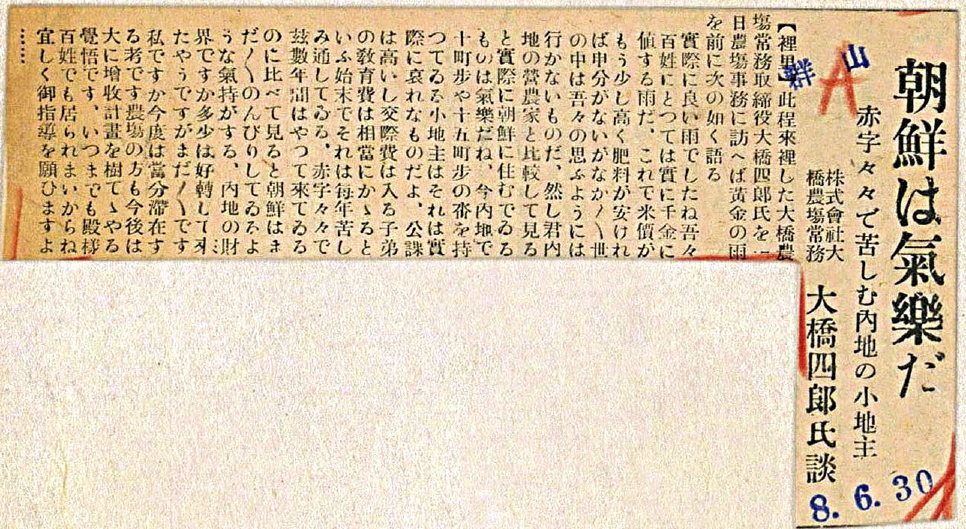 朝鮮は氣樂だ
赤字々々で苦しむ內地の小地主
株式會社大
橋農場常務
大橋四郞氏談
群山
A
8.6.30
【裡里】此程來裡した大橋農
場常務取締役大橋四郞氏を一
日農場事務に訪へば黃金の雨
を前に次の如く語る
實際に良い雨でしたね吾々
百姓にとつては實に千金に
値する雨だ、これで米價が
もう少し高く肥料が安けれ
ば申分がないがなか〳〵世
の中は吾々の思ふようには
行かないものだ、然し君內
地の營農家と比較して見る
と實際に朝鮮に住むでゐる
ものは氣樂だね、今內地で
十町歩や十五町歩の畓を持
つてゐる小地主はそれは實
際に哀れなものだよ、公課
は高いし交際費は入る子弟
の敎育費は相當にかゝると
いふ始末でそれは每年苦し
み通してゐる、赤字々々で
玆數年間はやつて來てゐる
のに比べて見ると朝鮮はま
だ〳〵のんびりしてゐるよ
うな氣持がする、內地の財
界ですか多少は好轉して來
たやうですがまだ〳〵です
私ですか今度は當分滯在す
る考です農場の方も今後は
大に增收計畫を樹てゝやる
覺悟です、いつまでも殿樣
百姓でも居られまいからね
宜しく御指導を願ひますよ
……